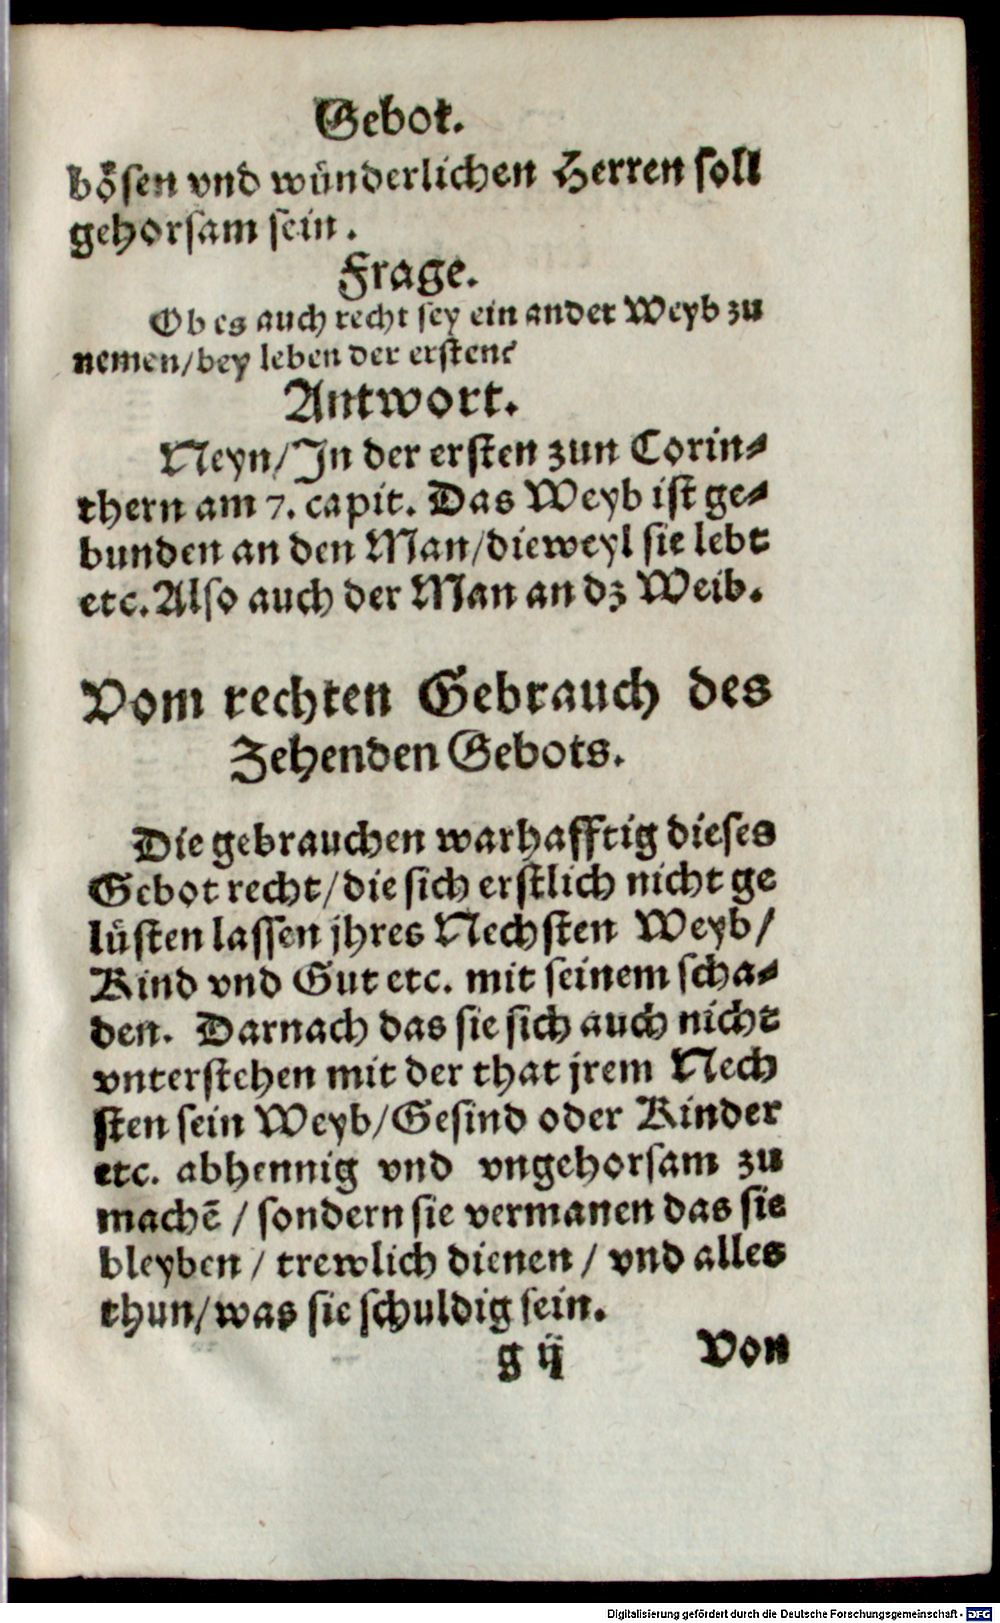 Gebot.
bösen vnd wünderlichen Herren soll
gehorsam sein.
Frage.
Ob es auch recht sey ein ander Weyb zu
nemen/bey leben der ersten?
Antwort.
Neyn/In der ersten zun Corin-
thern am 7. capit. Das Weyb ist ge-
bunden an den Man/dieweyl sie lebt
etc. Also auch der Man an dz Weib.
Vom rechten Gebrauch des
Zehenden Gebots.
Die gebrauchen warhafftig dieses
Gebot recht/die sich erstlich nicht ge
lüsten lassen jhres Nechsten Weyb/
Kind vnd Gut etc. mit seinem scha-
den. Darnach das sie sich auch nicht
vnterstehen mit der that jrem Nech
sten sein Weyb/Gesind oder Kinder
etc. abhennig vnd vngehorsam zu
machē / sondern sie vermanen das sie
bleyben / trewlich dienen / vnd alles
thun/was sie schuldig sein.
g ij Von
Digitalisierung gefördert durch die Deutsche Forschungsgemeinschaft - DFG